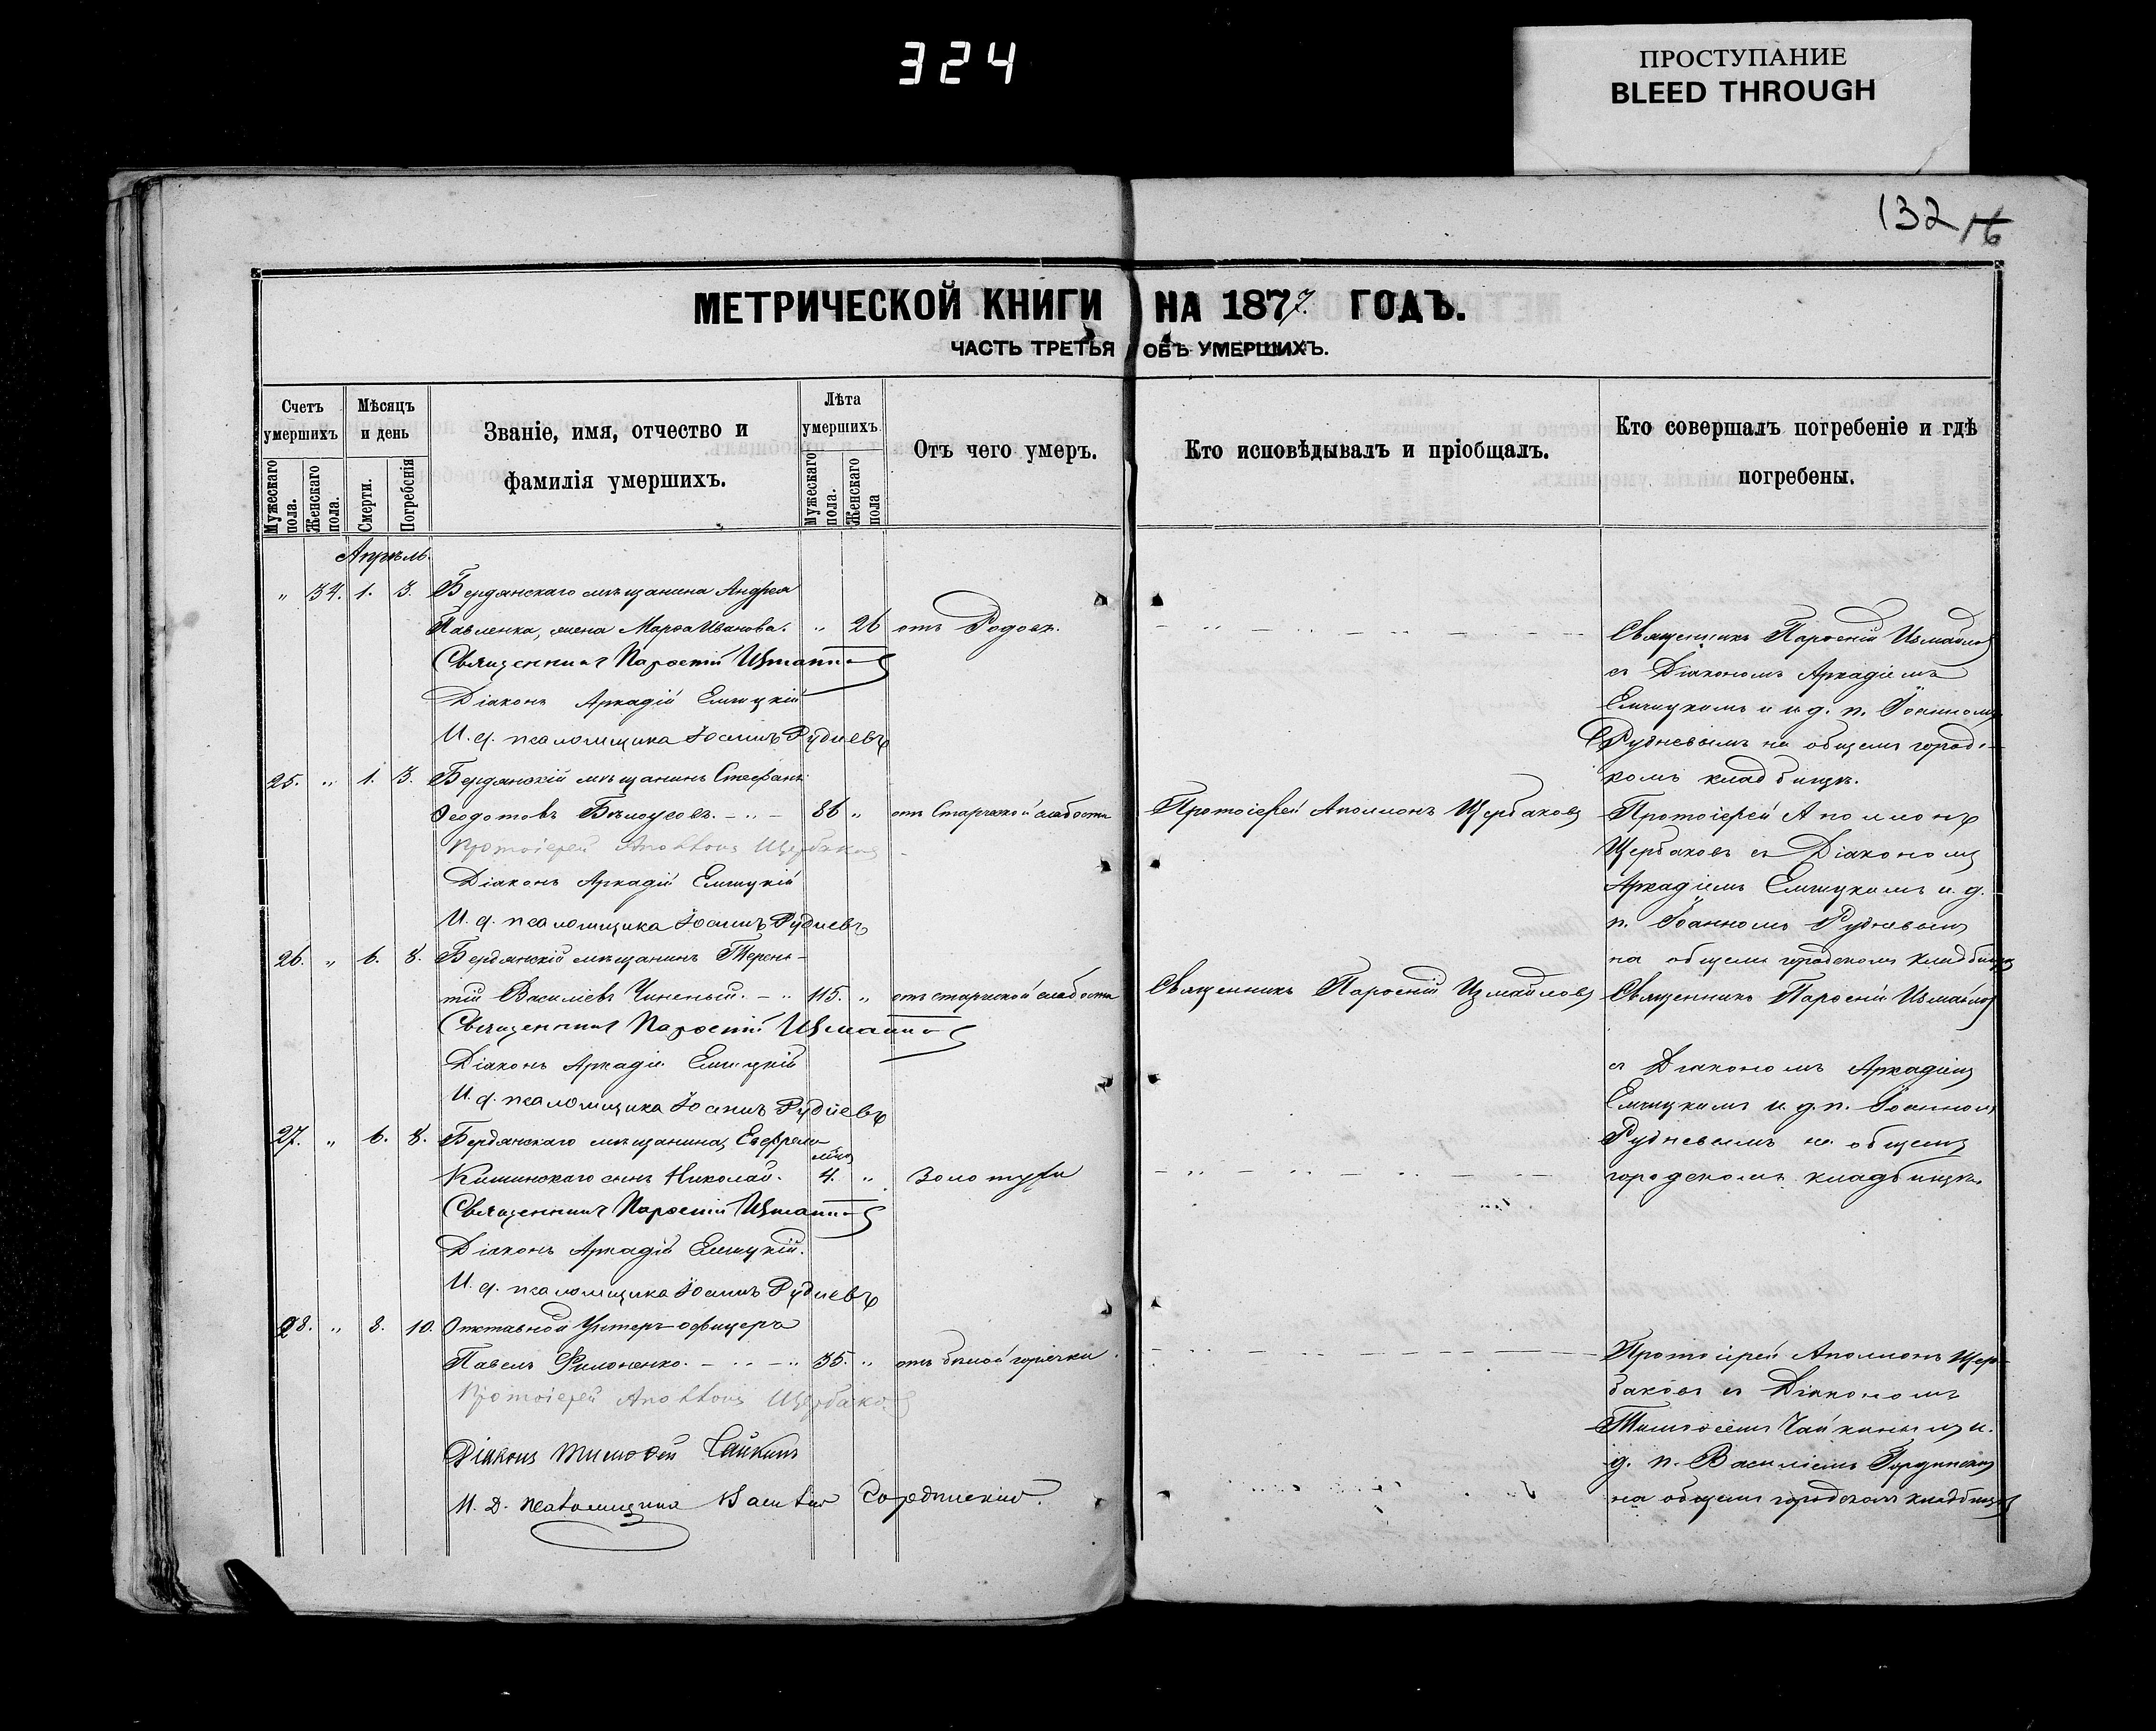 324
ПРОСТУПАНИЕ
BLEED THROUGH
132 16
МЕТРИЧЕСКОЙ КНИГИ НА 1877 ГОДЪ.
ЧАСТЬ ТРЕТЬЯ ОБЪ УМЕРШИХЪ.
Счетъ умершихъ
Мѣсяцъ и день
Званіе, имя, отчество и фамилія умершихъ.
Лѣта умершихъ.
Отъ чего умеръ.
Кто исповѣдывалъ и пріобщалъ.
Кто совершалъ погребеніе и гдѣ погребены.
Мужескаго пола.
Женскаго пола.
Смерти.
Погребенія
Мужескаго пола.
Женскаго пола
Апрѣль.
„ 34. 1. 3. Бердянскаго мѣщанина Андрея
Павленка, жена Марѳа Иванова. „ 26 отъ Родовъ.
Священникъ Парѳеній Измаиловъ
Діаконъ Аркадій Емницкій
И. д. псаломщика Іоаннъ Рудневъ
Священникъ Парѳеній Измаиловъ
съ Діакономъ Аркадіемъ
Емницкимъ и и. д. п. Іоанномъ
Рудневымъ на общемъ городс-
комъ кладбищѣ.
25. „ 1. 3. Бердянскій мѣщанинъ Стефанъ
Ѳеодотовъ Бѣлоусовъ. 86 „ отъ Старческой слабости
Протоіерей Аполлонъ Щербаковъ
Протоіерей Аполлонъ Щербаковъ
Діаконъ Аркадій Емницкій
И. д. псаломщика Іоаннъ Рудневъ
Протоіерей Аполлонъ
Щербаковъ съ Діакономъ
Аркадіемъ Емницкимъ и. д.
п. Іоанномъ Рудневымъ
на общемъ городскомъ кладбищѣ
26. „ 6. 8. Бердянскій мѣщанинъ Терен-
тій Василіевъ Чиненый. 115. „ отъ старческой слабости
Священникъ Парѳеній Измаиловъ
Священникъ Парѳеній Измаиловъ
Діаконъ Аркадій Емницкій
И. д. псаломщика Іоаннъ Рудневъ
Священникъ Парѳеній Измаиловъ
съ Діакономъ Аркадіемъ
Емницкимъ и. д. п. Іоанномъ
Рудневымъ на общемъ
городскомъ кладбищѣ.
27. „ 6. 8. Бердянскаго мѣщанина, Евфрема
сынъ Николай. 4. „ Золотухи
Священникъ Парѳеній Измаиловъ
Діаконъ Аркадій Емницкій.
И. д. псаломщика Іоаннъ Рудневъ
28. „ 8. 10. Отставной Унтеръ-офицеръ
Павелъ Филоненко. 35. „ отъ бѣлой горячки.
Протоіерей Аполлонъ Щербаковъ
Діаконъ Тимоѳей Чайкинъ
И. д. псаломщика Василій Гординскій.
Протоіерей Аполлонъ Щер-
баковъ съ Діакономъ
Тимоѳеемъ Чайкинымъ и.
д. п. Василіемъ Гординскимъ
на общемъ городскомъ кладбищѣ